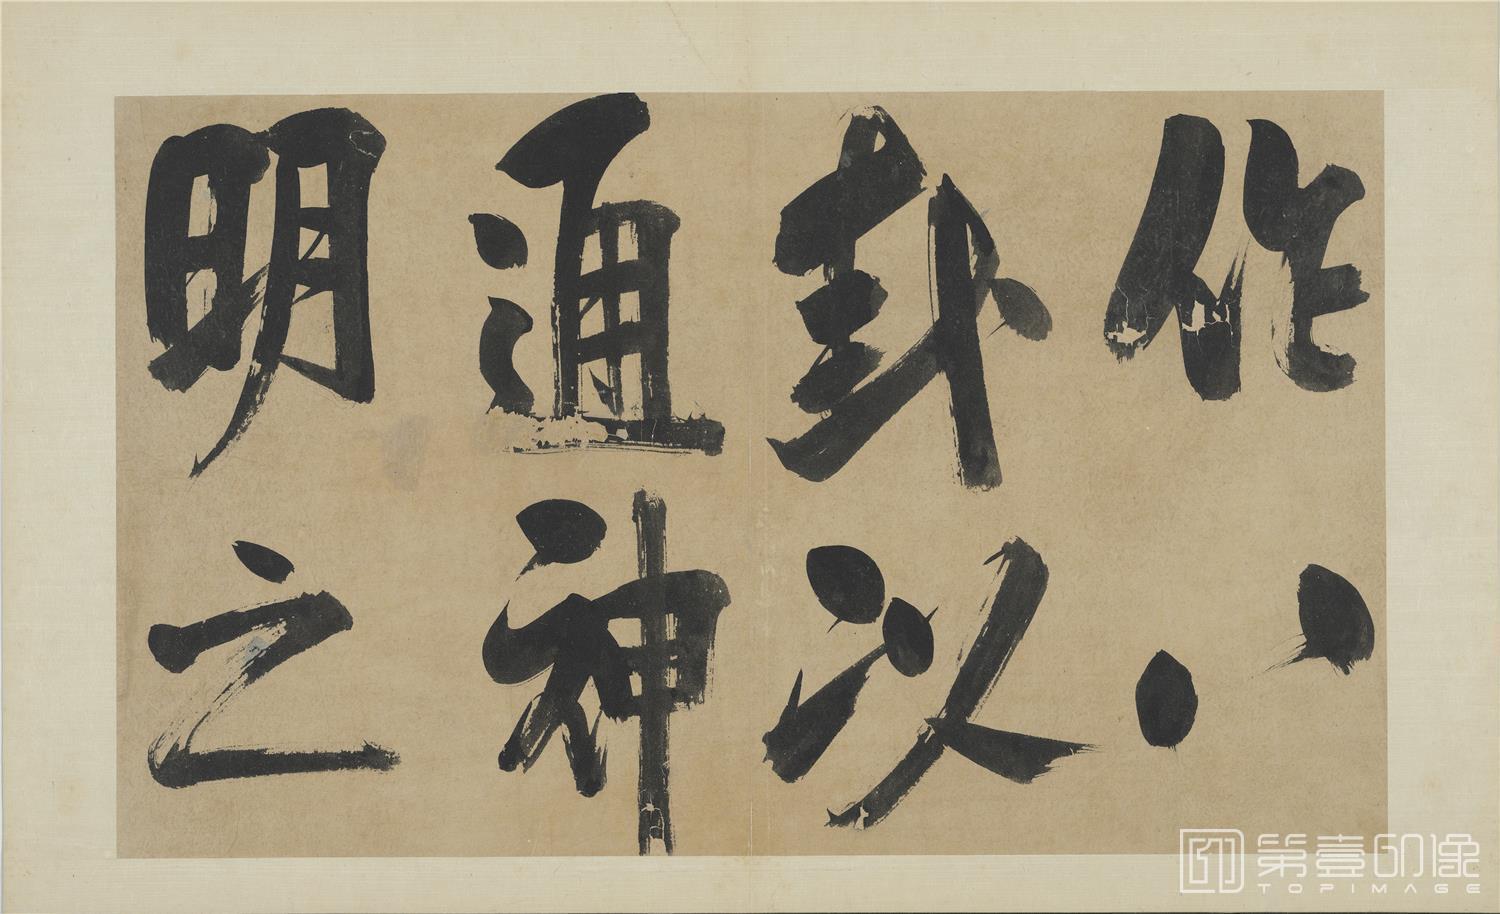 作八
卦以
通神
明之
第壹印像
TOPIMAGE